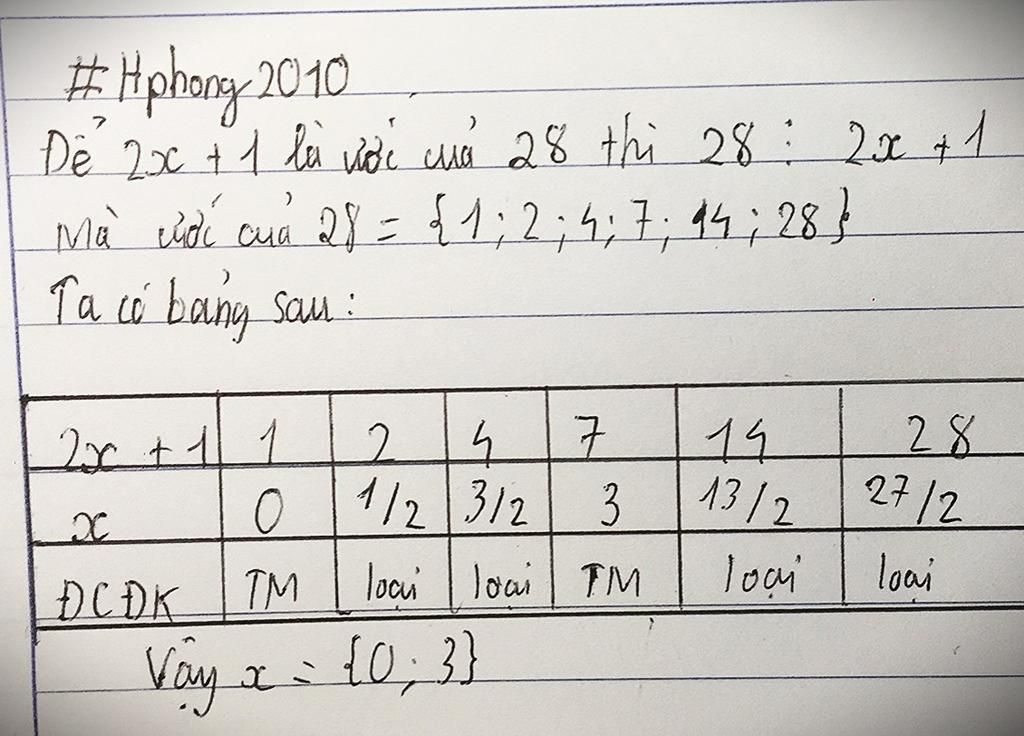 #Hphong2010
Để 2x + 1 là ước của 28 thì 28 ⋮ 2x + 1
Mà ước của 28 = {1; 2; 4; 7; 14; 28}
Ta có bảng sau:
2x + 1 1 2 4 7 14 28
x 0 1/2 3/2 3 13/2 27/2
ĐCĐK TM loại loại TM loại loại
Vậy x = {0; 3}